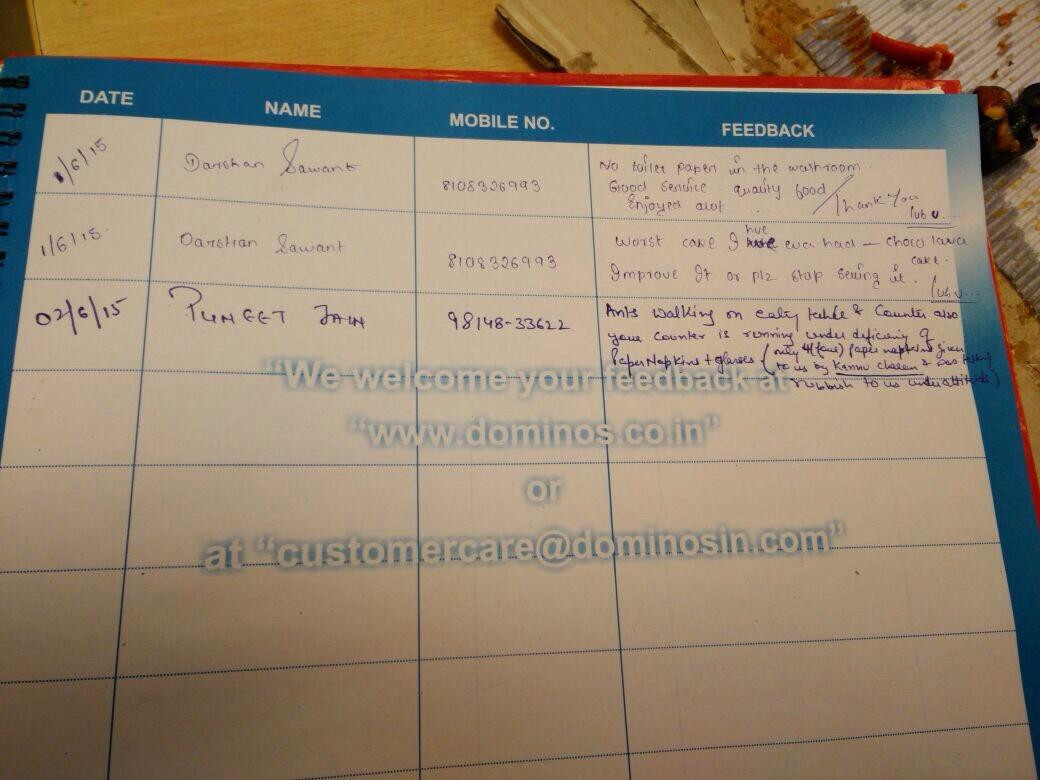 DATE NAME MOBILE NO. FEEDBACK
1/6/15 Darshan Sawant 8108326993 No toilet paper in the washroom.
Good service quality food / Thank You
Enjoyed alot ... luv u...
1/6/15. Darshan Sawant 8108326993 worst cake I hve ever had - choco lava
cake.
Improve It or plz stop serving it. luv u...
02/6/15 PUNEET JAIN 98148-33622 Ants walking on eating table & Counter also
your counter is running under deficiency of
Paper Napkins + glasses - (only 4(four) paper napkins given
to us by & was talking
rubbish to us under attitude)
"We welcome your feedback at
"www.dominos.co.in"
or
at "customercare@dominosin.com"